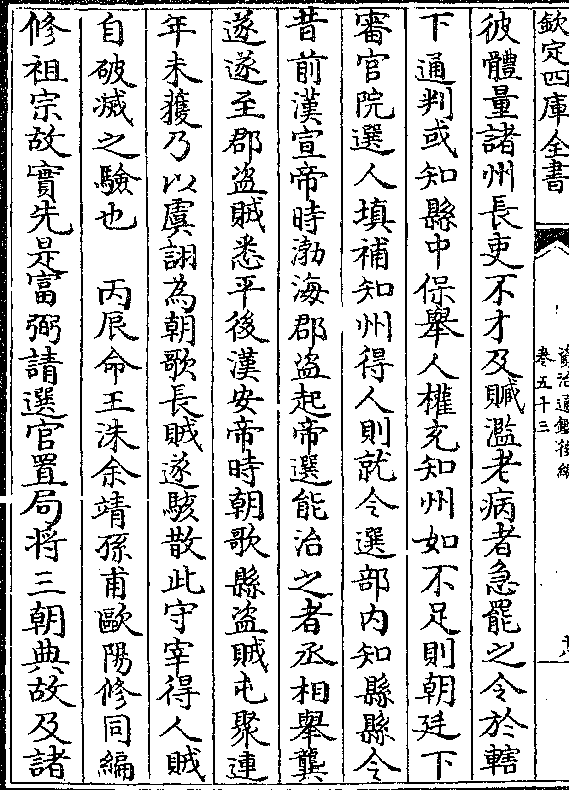 欽定四庫全書
資治通鑑後編
卷五十三
彼體量諸州長吏不才及贓濫老病者急罷之令於轄
下通判或知縣中保舉人權充知州如不足則朝廷下
審官院選人填補知州得人則就令選部內知縣縣令
昔前漢宣帝時渤海郡盜起帝選能治之者丞相舉龔
遂遂至郡盜賊悉平後漢安帝時朝歌縣盜賊屯聚連
年未獲乃以虞詡為朝歌長賊遂駭散此守宰得人賊
自破滅之驗也　丙辰命王洙余靖孫甫歐陽修同編
修祖宗故實先是富弼請選官置局將三朝典故及諸